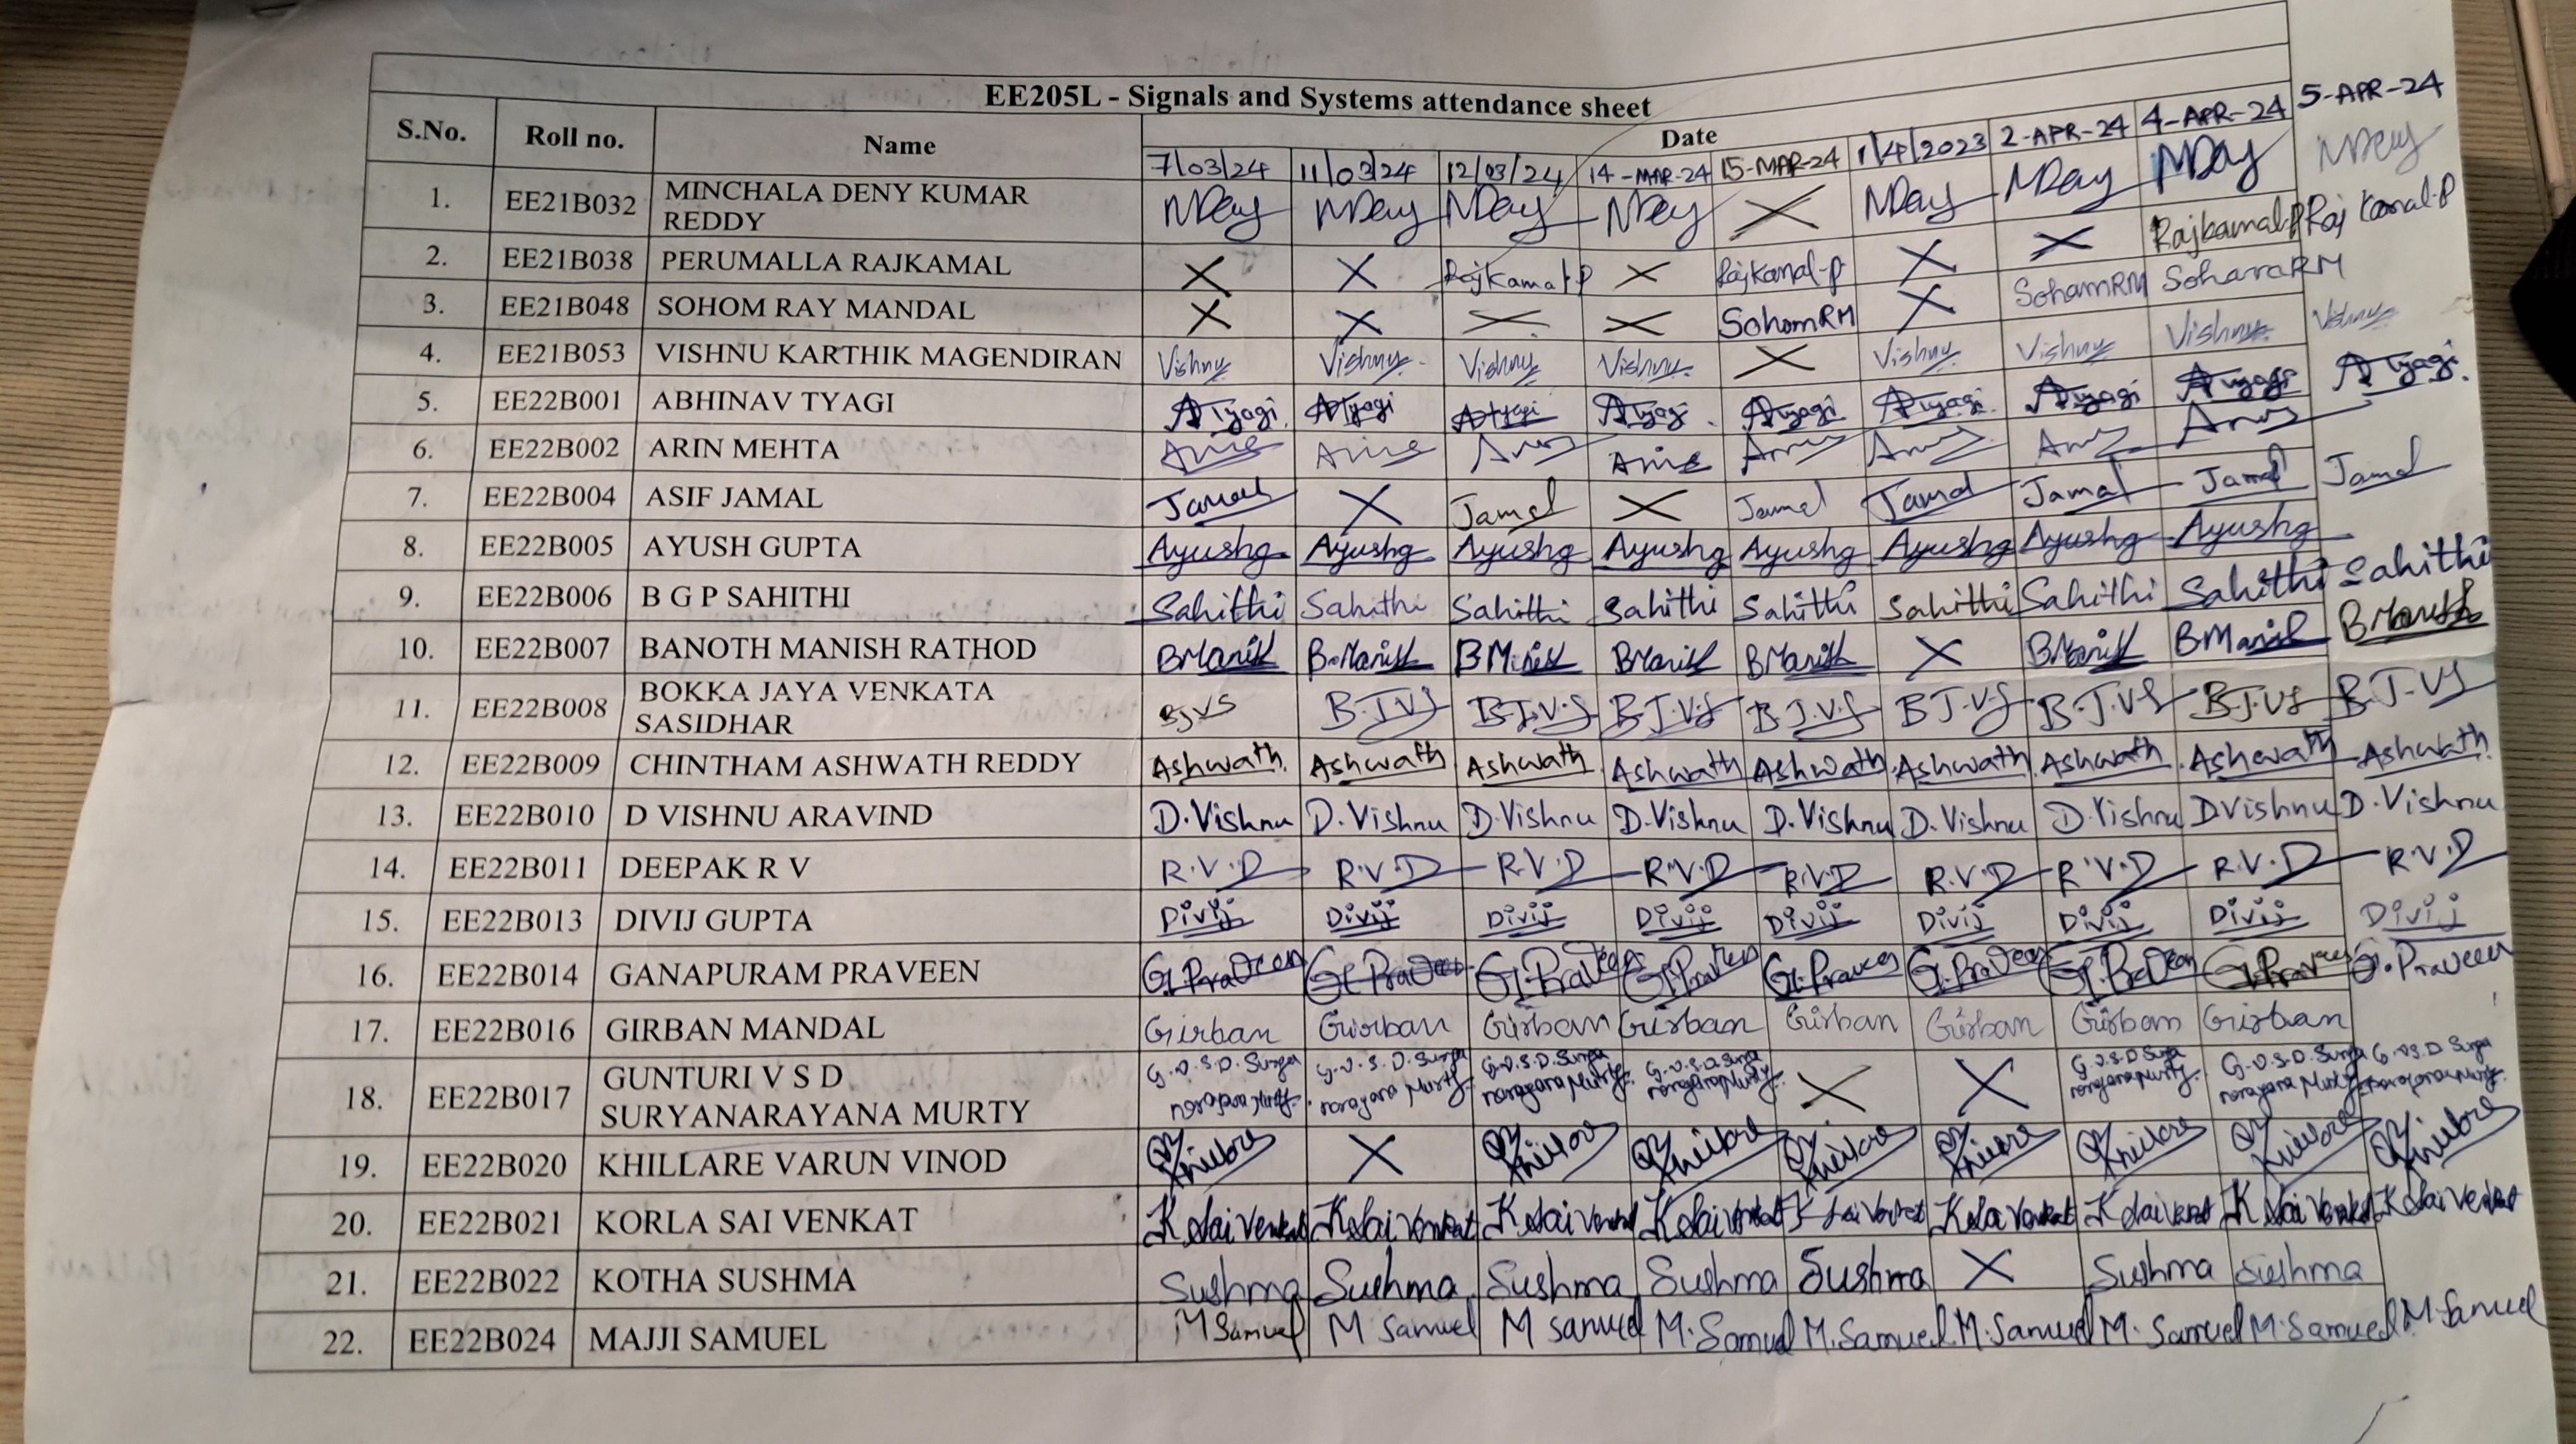 EE205L - Signals and Systems attendance sheet
S.No. Roll no. Name Date
7/03/24 11/03/24 12/03/24 14-MAR-24 15-MAR-24 1/4/2023 2-APR-24 4-APR-24 5-APR-24
1. EE21B032 MINCHALA DENY KUMAR REDDY NDay NDay NDay NDay X NDay NDay NDay NDay
2. EE21B038 PERUMALLA RAJKAMAL X X RajKamal P X RajKamal-P X X Rajkamal-P Raj Kamal-P
3. EE21B048 SOHOM RAY MANDAL X X X X SohomRM X SohamRM SohamRM
4. EE21B053 VISHNU KARTHIK MAGENDIRAN Vishnu Vishnu Vishnu Vishnu X Vishnu Vishnu Vishnu Vishnu
5. EE22B001 ABHINAV TYAGI ATyagi ATyagi ATyagi ATyagi ATyagi ATyagi ATyagi ATyagi ATyagi
6. EE22B002 ARIN MEHTA
7. EE22B004 ASIF JAMAL Jamal X Jamal X Jamal Jamal Jamal Jamal Jamal
8. EE22B005 AYUSH GUPTA Ayushg Ayushg Ayushg Ayushg Ayushg Ayushg Ayushg Ayushg
9. EE22B006 B G P SAHITHI Sahithi Sahithi Sahithi Sahithi Sahithi Sahithi Sahithi Sahithi Sahithi
10. EE22B007 BANOTH MANISH RATHOD BManish B.Manish BManish BManish BManish X BManish BManish BManish
11. EE22B008 BOKKA JAYA VENKATA SASIDHAR BJVS B.J.V.S B.J.V.S B.J.V.S B.J.V.S B J.V.S B.J.V.S B.J.V.S B J.VS
12. EE22B009 CHINTHAM ASHWATH REDDY Ashwath Ashwath Ashwath Ashwath Ashwath Ashwath Ashwath Ashwath Ashwath
13. EE22B010 D VISHNU ARAVIND D.Vishnu D.Vishnu D.Vishnu D.Vishnu D.Vishnu D.Vishnu D.Vishnu D.Vishnu D.Vishnu
14. EE22B011 DEEPAK R V R.V.D R.V.D R.V.D R.V.D R.V.D R.V.D R.V.D R.V.D R.V.D
15. EE22B013 DIVIJ GUPTA Divij Divij Divij Divij Divij Divij Divij Divij Divij
16. EE22B014 GANAPURAM PRAVEEN G.Praveen G.Praveen G.Praveen G.Praveen G.Praveen G.Praveen G.Praveen G.Praveen G.Praveen
17. EE22B016 GIRBAN MANDAL Girban Girban Girban Girban Girban Girban Girban Girban
18. EE22B017 GUNTURI V S D SURYANARAYANA MURTY G.V.S.D.Surya narayana Murty G.V.S.D.Surya narayana Murty G.V.S.D.Surya narayana Murty G.V.S.D.Surya narayana Murty X X G.V.S.D Surya narayana Murty G.V.S.D.Surya narayana Murty G.V.S.D Surya narayana Murty
19. EE22B020 KHILLARE VARUN VINOD Khillare X Khillare Khillare Khillare Khillare Khillare Khillare Khillare
20. EE22B021 KORLA SAI VENKAT K Sai Venkat K Sai Venkat K Sai Venkat K Sai Venkat K Sai Venkat K Sai Venkat K Sai Venkat K Sai Venkat K Sai Venkat
21. EE22B022 KOTHA SUSHMA Sushma Sushma Sushma Sushma Sushma X Sushma Sushma
22. EE22B024 MAJJI SAMUEL M Samuel M Samuel M Samuel M.Samuel M.Samuel M.Samuel M.Samuel M.Samuel M.Samuel